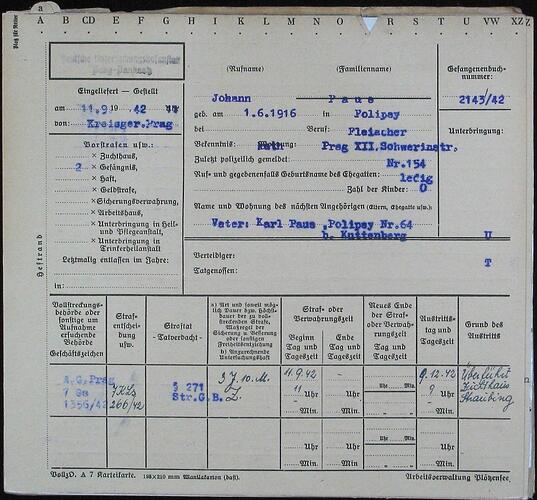 a
A B CD E F G H I K L M N O P R S T U VW XZ
(Rufname) (Familienname)
Gefangenenbuch-
nummer:
Johann Paus
2143/42
Eingeliefert — Gestellt
am 11.9.19 42 11
von: Kreisger.Prag
geb. am 1.6.1916 in Polipsy
bei Beruf: Fleischer
Bekenntnis: kath Wohnung: Prag XII, Schwerinstr.
Unterbringung:
Zuletzt polizeilich gemeldet: Nr.154
Ruf- und gegebenenfalls Geburtsname des Ehegatten: ledig
Zahl der Kinder: 0
Vorstrafen usw.:
× Zuchthaus,
2 × Gefängnis,
× Haft,
× Geldstrafe,
× Sicherungsverwahrung,
× Arbeitshaus,
× Unterbringung in Heil-
und Pflegeanstalt,
× Unterbringung in
Trinkerheilanstalt
Letztmalig entlassen im Jahre:
in:
Name und Wohnung des nächsten Angehörigen (Eltern, Ehegatte usw.):
Vater: Karl Paus, Polipsy Nr.64
b. Kuttenberg
U
T
Verteidiger:
Tatgenossen:
Heftrand
Vollstreckungs-
behörde oder
sonstige um
Aufnahme
ersuchende
Behörde
Geschäftszeichen
Straf-
entscheidung
usw.
Strafтat
- Tatverdacht -
a) Art und soweit mög-
lich Dauer bzw. Höchst-
dauer der zu voll-
streckenden Strafe,
Maßregel der
Sicherung u. Besserung
oder sonstigen
Freiheitsentziehung
b) Anzurechnende
Untersuchungshaft
Straf- oder
Verwahrungszeit
Beginn
Tag und
Tageszeit
Ende
Tag und
Tageszeit
Neues Ende
der Straf-
oder Verwah-
rungszeit
Tag und
Tageszeit
Austritts-
tag und
Tageszeit
Grund des
Austritts
A.G. Prag
7 Gs
1356/42
7 KLs
266/42
§ 271
Str.G.B.
3 J. 10. M.
Z.
11.9.42
11 Uhr
Min.
-
Uhr
Min.
Uhr Min.
9.12.42
9 Uhr
Min.
Überführt
Zuchthaus
Straubing
Uhr
Min.
Uhr
Min.
Uhr Min.
Uhr
Min.
VollzO. A 7 Karteikarte. 198×210 mm Manilakarton (halt).
Arbeitsverwaltung Plötzensee.